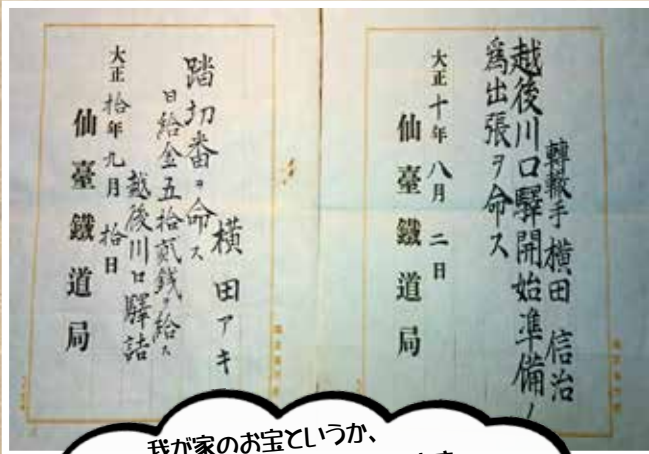 轉轍手 横田 信治
越後川口驛開始準備ノ
爲出張ヲ命ス
大正十年八月二日
仙臺鐵道局
横田アキ
踏切番ヲ命ス
日給金五拾貳銭ヲ給ス
越後川口驛詰
大正拾年九月拾日
仙臺鐵道局
我が家のお宝というか、